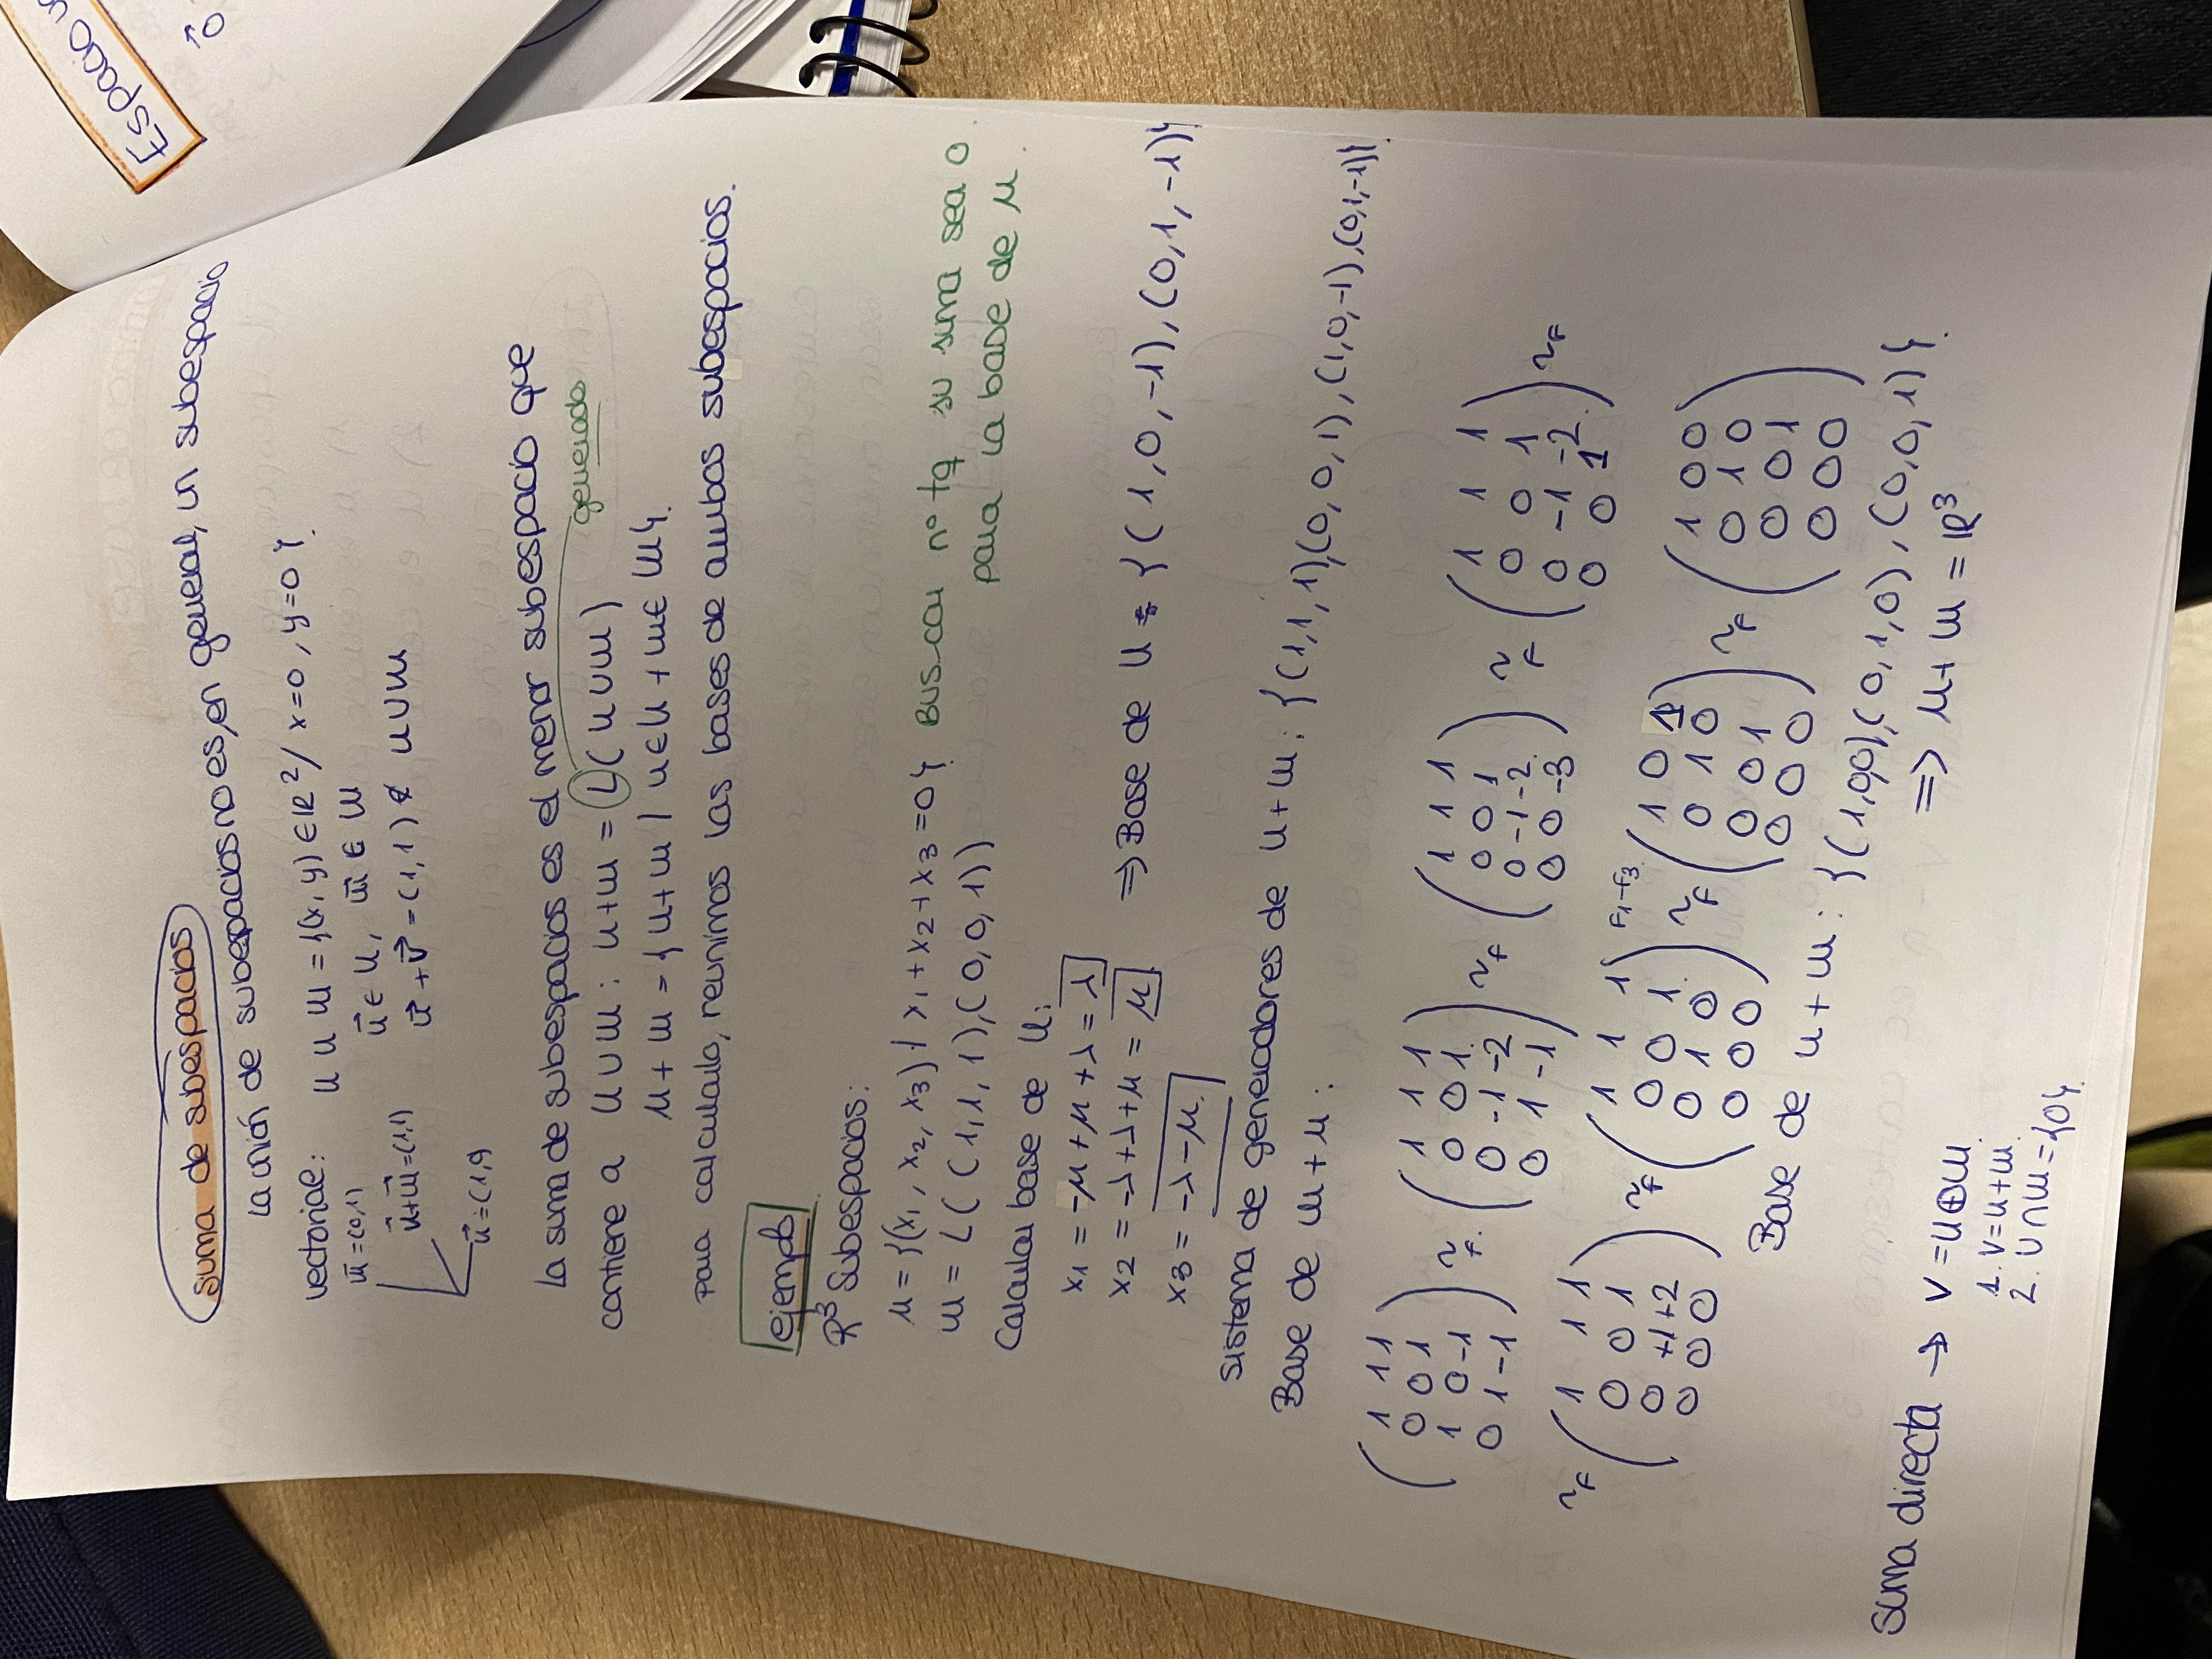 suma de subespacios
La unión de subespacios no es, en general, un subespacio
vectorial: U ∪ W = {(x, y) ∈ ℝ² / x=0, y=0}.
w⃗ = (0,1)
u⃗ ∈ U, w⃗ ∈ W
u⃗+w⃗ = (1,1)
u⃗ + v⃗ = (1,1) ∉ U∪W
u⃗ = (1,0)
La suma de subespacios es el menor subespacio que
generado
contiene a U∪W: U+W = L(U∪W)
U + W = {u+w / u∈U + w∈ W}.
para calcularlo, reunimos las bases de ambos subespacios.
ejemplo
R³ Subespacios:
U = {(x₁, x₂, x₃) / x₁+x₂+x₃=0}. Buscar nº tq su suma sea 0
W = L((1,1,1),(0,0,1)) para la base de U.
Calcular base de U:
x1 = -μ+μ+λ = λ
x2 = -λ+λ+μ = μ ⇒ Base de U = {(1,0,-1),(0,1,-1)}
x3 = -λ-μ.
Sistema de generadores de U+W: {(1,1,1),(0,0,1),(1,0,-1),(0,1,-1)}.
Base de W+U:
(1 1 1 / 0 0 1 / 1 0 -1 / 0 1 -1) ~F. (1 1 1 / 0 0 1 / 0 -1 -2 / 0 1 -1) ~F (1 1 1 / 0 0 1 / 0 -1 -2 / 0 0 -3) ~F (1 1 1 / 0 0 1 / 0 -1 -2 / 0 0 1) ~F
~F (1 1 1 / 0 0 1 / 0 +1 +2 / 0 0 0) ~F (1 1 1 / 0 0 1 / 0 1 0 / 0 0 0) F1-F3 ~F (1 0 1 / 0 1 0 / 0 0 1 / 0 0 0) ~F (1 0 0 / 0 1 0 / 0 0 1 / 0 0 0)
Base de U+W: {(1,0,0),(0,1,0),(0,0,1)}.
⇒ U+W = ℝ³
Suma directa → V = U⊕W.
1. V=U+W.
2. U∩W={0}.
Espacio
0⃗